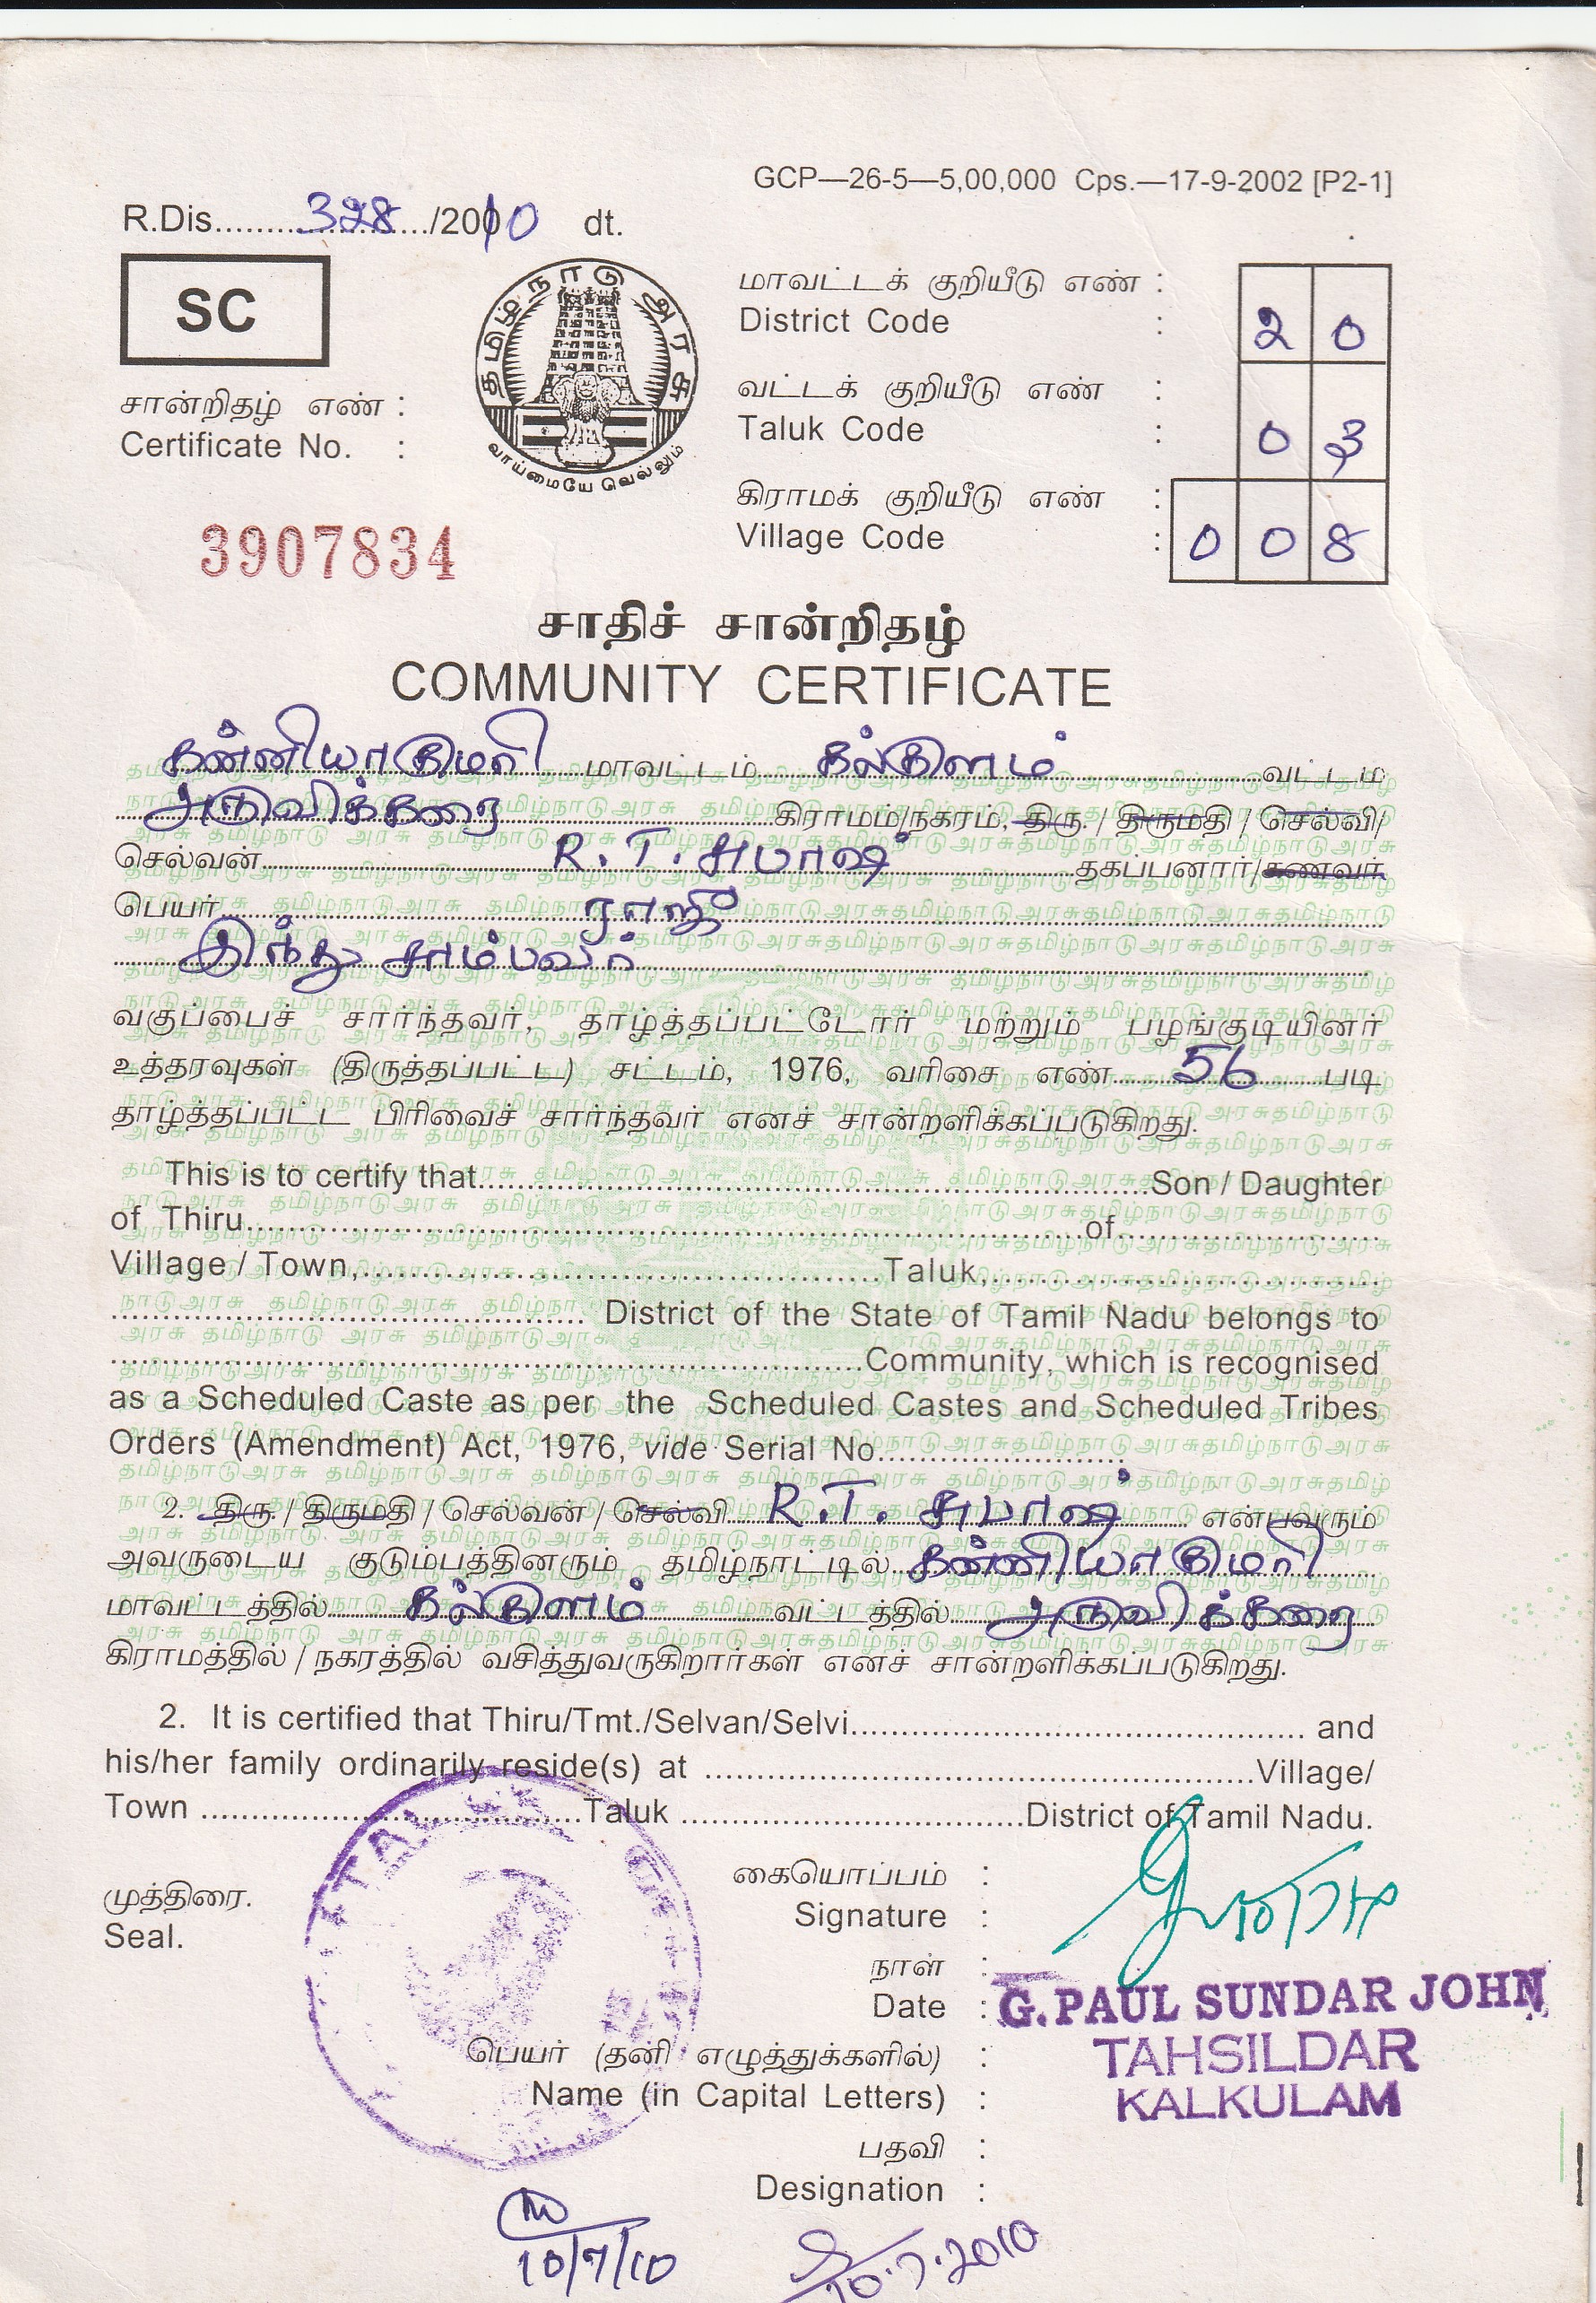 GCP—26-5—5,00,000 Cps.—17-9-2002 [P2-1]
R.Dis.....328...../2010 dt.
SC
தமிழ்நாடு அரசு
வாய்மையே வெல்லும்
மாவட்டக் குறியீடு எண் :
District Code : 2 0
சான்றிதழ் எண் :
Certificate No. :
வட்டக் குறியீடு எண் :
Taluk Code : 0 3
கிராமக் குறியீடு எண் :
Village Code : 0 0 8
3907834
சாதிச் சான்றிதழ்
COMMUNITY CERTIFICATE
கன்னியாகுமரி மாவட்டம் கல்குளம் வட்டம்
அருவிக்கரை கிராமம்/நகரம், திரு. / திருமதி / செல்வி/
செல்வன் R. T. சுபாஷ் தகப்பனார்/கணவர்
பெயர் ராஜீ
இந்து சாம்பவர்
வகுப்பைச் சார்ந்தவர், தாழ்த்தப்பட்டோர் மற்றும் பழங்குடியினர்
உத்தரவுகள் (திருத்தப்பட்ட) சட்டம், 1976, வரிசை எண் 56 படி
தாழ்த்தப்பட்ட பிரிவைச் சார்ந்தவர் எனச் சான்றளிக்கப்படுகிறது.
This is to certify that..........Son / Daughter
of Thiru..........of..........
Village / Town,..........Taluk,..........
.......... District of the State of Tamil Nadu belongs to
..........Community, which is recognised
as a Scheduled Caste as per the Scheduled Castes and Scheduled Tribes
Orders (Amendment) Act, 1976, vide Serial No...........
2. திரு. / திருமதி / செல்வன் / செல்வி R.T. சுபாஷ் என்பவரும்
அவருடைய குடும்பத்தினரும் தமிழ்நாட்டில் கன்னியாகுமரி
மாவட்டத்தில் கல்குளம் வட்டத்தில் அருவிக்கரை
கிராமத்தில் / நகரத்தில் வசித்துவருகிறார்கள் எனச் சான்றளிக்கப்படுகிறது.
2. It is certified that Thiru/Tmt./Selvan/Selvi.......... and
his/her family ordinarily reside(s) at ..........Village/
Town ..........Taluk ..........District of Tamil Nadu.
கையொப்பம் :
முத்திரை. Signature :
Seal.
நாள் :
Date :
G. PAUL SUNDAR JOHN
TAHSILDAR
KALKULAM
பெயர் (தனி எழுத்துக்களில்) :
Name (in Capital Letters) :
பதவி :
Designation :
10/7/10
10.7.2010